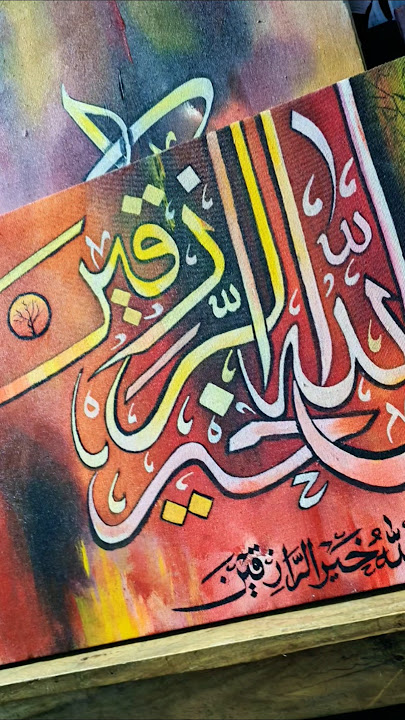 الله خير الرازقين
اللهُ خَيْرُ الرَّازِقِينَ